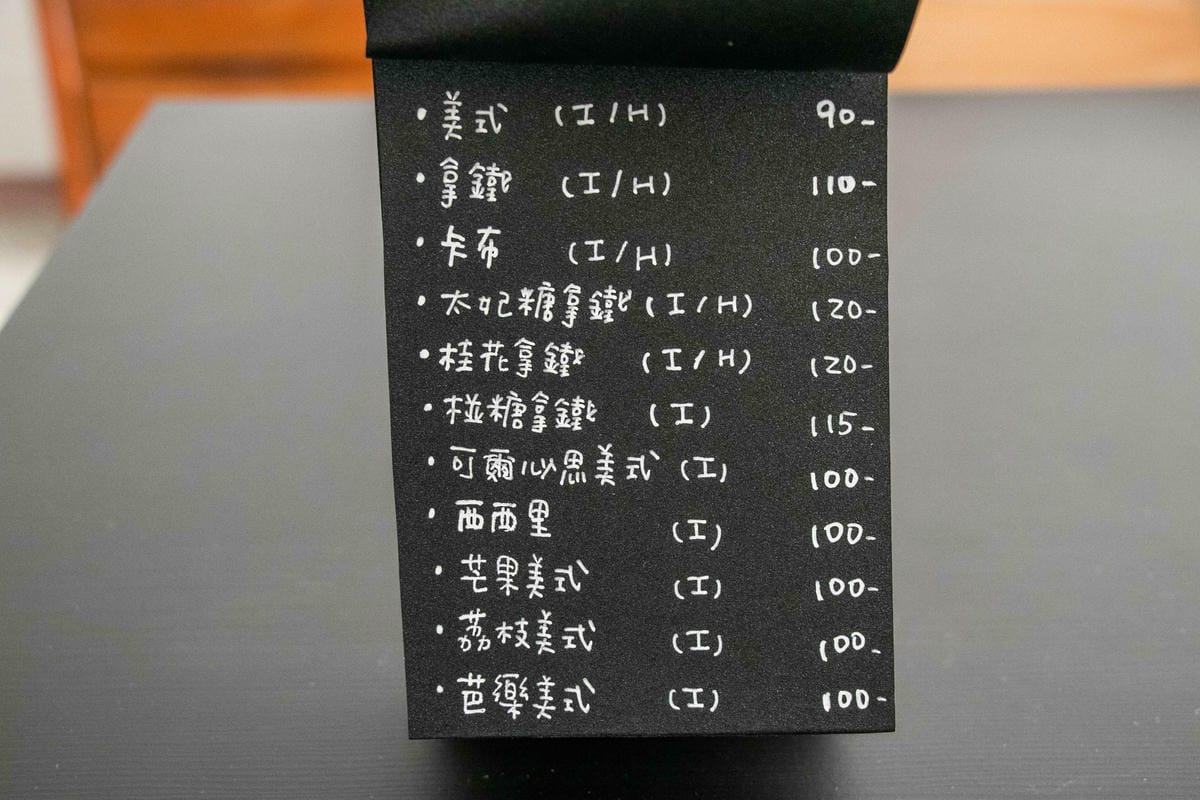 ・美式 (I/H) 90-
・拿鐵 (I/H) 110-
・卡布 (I/H) 100-
・太妃糖拿鐵 (I/H) 120-
・桂花拿鐵 (I/H) 120-
・椪糖拿鐵 (I) 115-
・可爾必思美式 (I) 100-
・西西里 (I) 100-
・芒果美式 (I) 100-
・荔枝美式 (I) 100-
・芭樂美式 (I) 100-